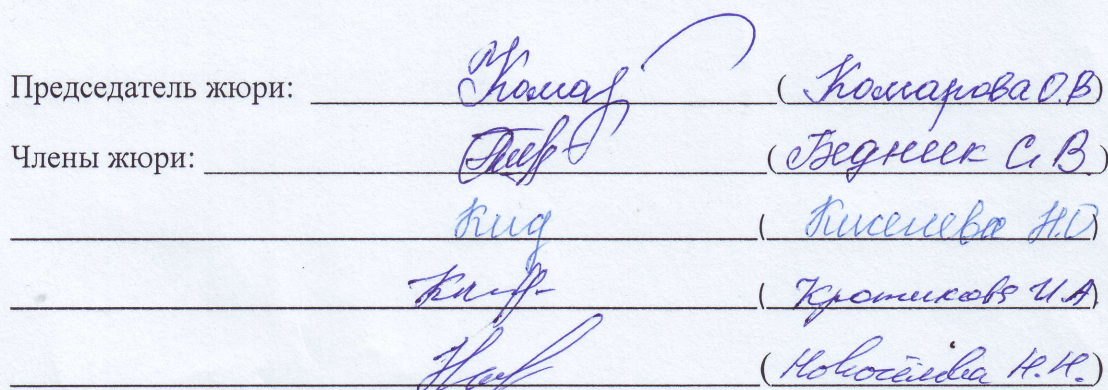 Председатель жюри: (Комарова О.В)
Члены жюри: (Бедник С.В.)
(Киселева Н.О)
(Кротикова И.А)
(Новосёлова Н.Н.)